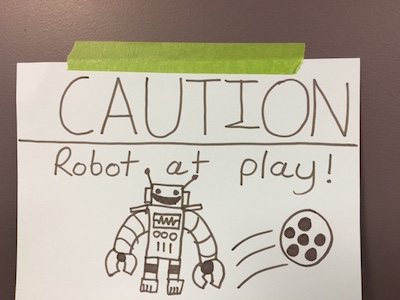 CAUTION
Robot at play!